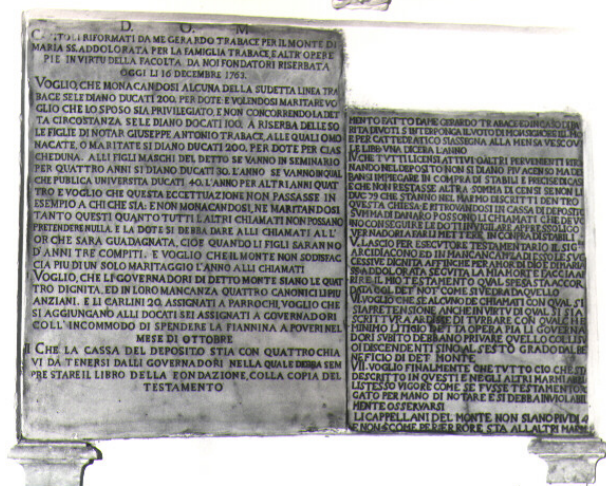 D. O. M
CAPITOLI RIFORMATI DA ME GERARDO TRABACE PER IL MONTE DI
MARIA SS. ADDOLORATA PER LA FAMIGLIA TRABACE E ALTR'OPERE
PIE IN VIRTU DELLA FACOLTA DA NOI FONDATORI RISERBATA
OGGI LI 16 DECEMBRE 1763.
VOGLIO, CHE MONACANDOSI ALCUNA DELLA SUDETTA LINEA TRA
BACE SE LE DIANO DUCATI 200. PER DOTE E VOLENDOSI MARITARE VO
GLIO CHE LO SPOSO SIA PRIVILEGIATO, E NON CONCORRENDO LA DET
TA CIRCOSTANZA SE LE DIANO DUCATI 100, A RISERBA DELLE SO
LE FIGLIE DI NOTAR GIUSEPPE ANTONIO TRABACE, ALLE QUALI O MO
NACATE, O MARITATE SI DIANO DUCATI 200, PER DOTE PER CIAS
CHEDUNA. ALLI FIGLI MASCHI DEL DETTO SE VANNO IN SEMINARIO
PER QUATTRO ANNI SI DIANO DUCATI 30. L'ANNO SE VANNO IN QUAL
CHE PUBLICA UNIVERSITA DUCATI 40. L'ANNO PER ALTRI ANNI QUAT
TRO E VOGLIO CHE QUESTA ECCETTUAZIONE NON PASSASSE IN
ESEMPIO A CHI CHE SIA: E NON MONACANDOSI, NE MARITANDOSI
TANTO QUESTI QUANTO TUTTI L'ALTRI CHIAMATI NON POSSANO
PRETENDERE NULLA. E LA DOTE SI DEBBA DARE ALLI CHIAMATI ALL'
OR CHE SARA GUADAGNATA, CIOE QUANDO LI FIGLI SARANNO
D'ANNI TRE COMPITI. E VOGLIO CHE IL MONTE NON SODISFAC
CIA PIU DI UN SOLO MARITAGGIO L'ANNO ALLI CHIAMATI
VOGLIO, CHE LI GOVERNADORI DI DETTO MONTE SIANO LE QUAT
TRO DIGNITA, ED IN LORO MANCANZA QUATTRO CANONICI LI PIU
ANZIANI. E LI CARLINI 20. ASSEGNATI A PAROCHI, VOGLIO CHE
SI AGGIUNGANO ALLI DOCATI SEI ASSIGNATI A GOVERNADORI
COLL'INCOMMODO DI SPENDERE LA FIANNINA A POVERI NEL
MESE DI OTTOBRE
CHE LA CASSA DEL DEPOSITO STIA CON QUATTRO CHIA
VI DA TENERSI DALLI GOVERNADORI NELLA QUALE DEBBA SEM
PRE STARE IL LIBRO DELLA FONDAZIONE, COLLA COPIA DEL
TESTAMENTO
MENTO FATTO DA ME GERARDO TRABACE ED IN CASO DI
S'INTERPONGA IL VOTO DI MONSIGNORE
E PER CATTEDRATICO S'ASSEGNA ALLA MENSA VESCOV
LE LIBR. UNA DI CERA L'ANNO
IV CHE TUTTI LI CENSI ATTIVI D'ALTRI PERVENIENTI
NANDO NEL DEPOSITO NON SI DIANO PIU A CENSO MA DEB
BANSI IMPIEGARE IN COMPRA DI STABILI E PRECISE IN CAS
E CHE NON RESTASSE ALTRA SOMMA DI CENSI SE NON LI
DUC 79 CHE STANNO NEL MARMO DESCRITTI DENTRO
QUESTA CHIESA E RITROVANDOSI IN CASSA DI DEPOSITO
SUMMA DI DANARO POSSONO LI CHIAMATI CHE DEVO
NO CONSEGUIRE LE DOTI INVIGILARE APPRESSO LI GO
VERNADORI A FARLI METTERE IN COMPRA DI STABILI.
V. LASCIO PER ESECUTORE TESTAMENTARIO IL SIG
ARCIDIACONO ED IN MANCANZA D'ESSO LE SUC
CESSIVE DIGNITA AFFINCHE PER AMOR DI DIO E DI MARIA
SS ADDOLORATA SEGUITA LA MIA MORTE FACCIA A
RIRE IL MIO TESTAMENTO QUAL SPESA STA ACCOR
DATA COL DET. NOT COME SI VEDRA DA QUELLO
VI. VOGLIO CHE SE ALCUNO DE CHIAMATI CON QUAL SI
SIA PRETENSIONE ANCHE IN VIRTU DI QUAL SI SIA
SCRITTURA ARDISSE DI TURBARE CON QUALCHE
MINIMO LITIGIO DETTA OPERA PIA LI GOVERNA
DORI SUBITO DEBBANO PRIVARE QUELLO COLLI SUO
OI DESCENDENTI SINO AL SESTO GRADO DAL BE
NEFICIO DI DET. MONTE
VII. VOGLIO FINALMENTE CHE TUTTO CIO CHE STA
DESCRITTO IN QUESTI E NEGLI ALTRI MARMI ABBIA
L'ISTESSO VIGORE COME SE FUSSE TESTAMENTO
GATO PER MANO DI NOTARE E SI DEBBA INVIOLABIL
MENTE OSSERVARSI
LI CAPPELLANI DEL MONTE NON SIANO PIU DI 4
E NON 5 COME PER ERRORE STA ALL'ALTRI